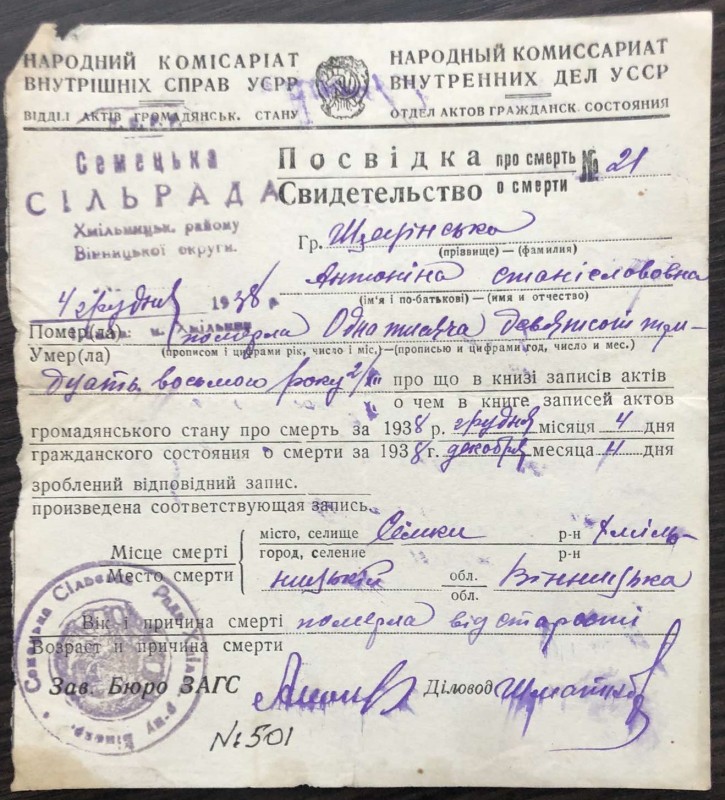 НАРОДНИЙ КОМІСАРІАТ
ВНУТРІШНІХ СПРАВ УСРР
ВІДДІЛ АКТІВ ГРОМАДЯНСЬК. СТАНУ
НАРОДНЫЙ КОМИССАРИАТ
ВНУТРЕННИХ ДЕЛ УССР
ОТДЕЛ АКТОВ ГРАЖДАНСК. СОСТОЯНИЯ
Семецька
СІЛЬРАДА
Хмільницьк. району
Вінницької округи.
Посвідка про смерть № 21
Свидетельство о смерти
Гр.
(прізвище) — (фамилия)
Антоніна Станіславовна
(ім'я і по-батькові) — (имя и отчество)
4 грудня 1938 г.
м. Хмільник
Помер(ла) померла Одна тисяча девятсот три-
Умер(ла) (прописом і цифрами рік, число і міс.)—(прописью и цифрами год, число и мес.)
дцать восьмого року 2/XII про що в книзі записів актів
о чем в книге записей актов
громадянського стану про смерть за 1938 р. грудня місяця 4 дня
гражданского состояния о смерти за 1938 г. декабря месяца 4 дня
зроблений відповідний запис.
произведена соответствующая запись.
Місце смерті
Место смерти
місто, селище Сёмки р-н Хміль-
город, селение р-н
ницький обл. Вінницька
обл.
Вік і причина смерті померла від старості
Возраст и причина смерти
Зав. Бюро ЗАГС Діловод
№ 501